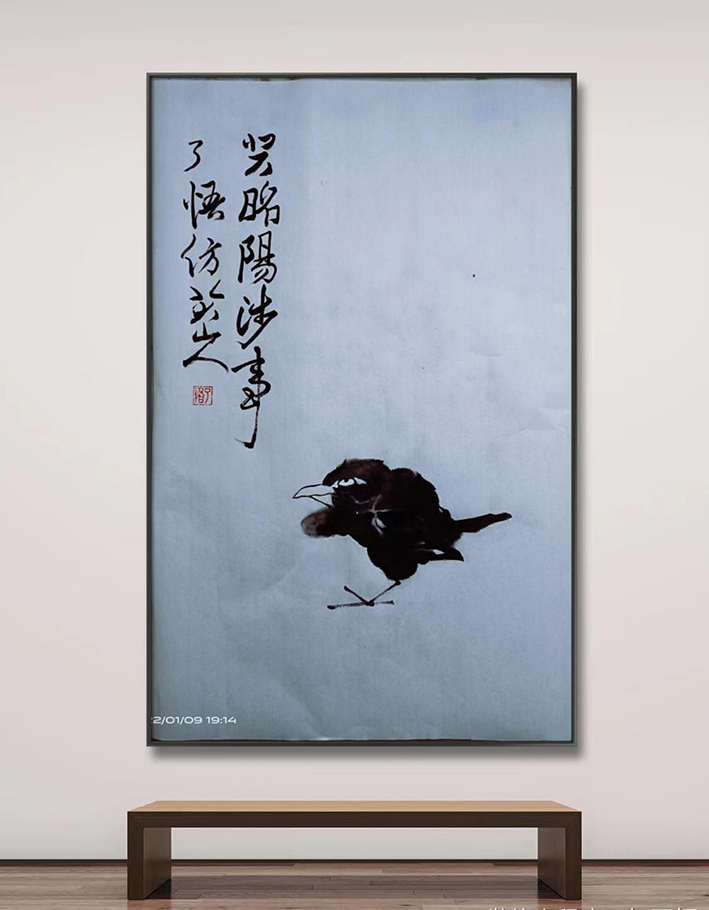 昭陽涉事
了悟仿八大山人
2/01/09 19:14